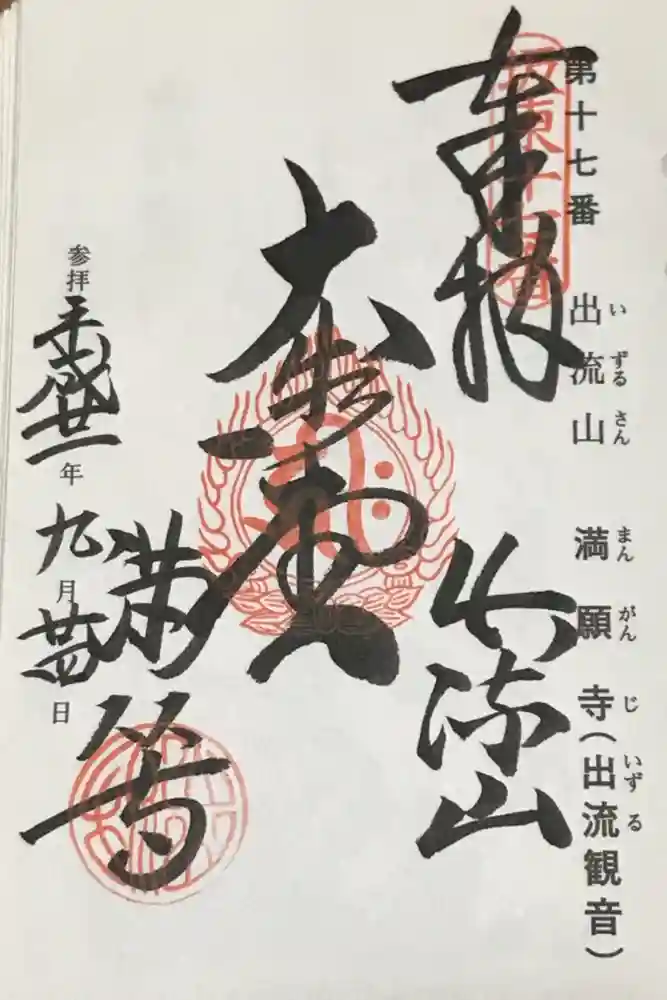 第十七番 出流山 満願寺(出流観音)
いずるさん まんがんじ いずる
坂東十七番
奉拝
出流山
満願寺
参拝 平成廿一年九月廿四日